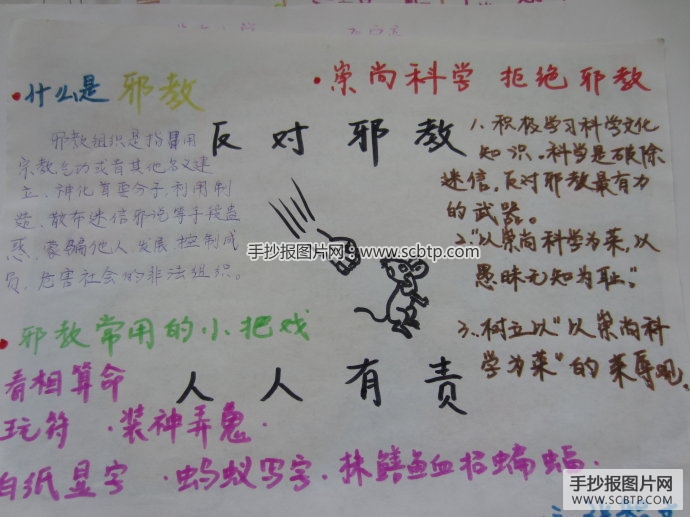 什么是 邪教
邪教组织是指冒用
宗教气功或者其他名义建
立、神化首要分子,利用制
造、散布迷信邪说等手段蛊
惑、蒙骗他人,发展、控制成
员,危害社会的非法组织。
反 对 邪 教
崇尚科学 拒绝邪教
1. 积极学习科学文化
知识。科学是破除
迷信,反对邪教最有力
的武器。
2."以崇尚科学为荣,以
愚昧无知为耻。"
3.树立以"以崇尚科
学为荣"的荣辱观。
手抄报图片网 - www.scbtp.com
邪教常用的小把戏
看相算命
玩符 ·装神弄鬼·
白纸显字 ·蚂蚁写字·抹鳝鱼血招蝙蝠·
人 人 有 责
手抄报图片网
WWW.SCBTP.COM